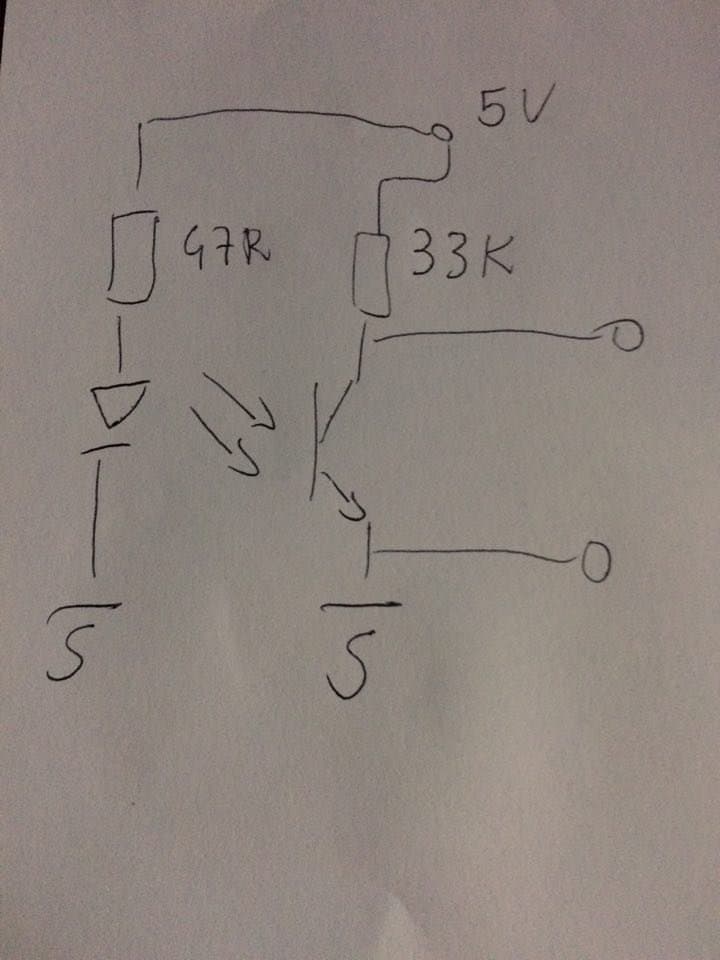 5V
47R
33K